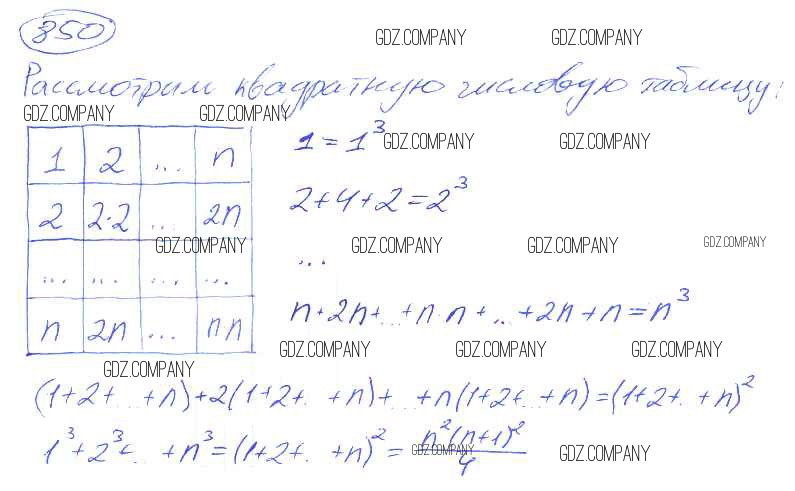 850
GDZ.COMPANY GDZ.COMPANY
Рассмотрим квадратную числовую таблицу:
GDZ.COMPANY GDZ.COMPANY
1 2 ... n
1 = 1³ GDZ.COMPANY GDZ.COMPANY
2 2·2 ... 2n
2+4+2=2³
GDZ.COMPANY GDZ.COMPANY GDZ.COMPANY GDZ.COMPANY
... ... ... ...
...
n 2n ... nn
n+2n+...+n·n+...+2n+n=n³
GDZ.COMPANY GDZ.COMPANY GDZ.COMPANY
GDZ.COMPANY
(1+2+...+n)+2(1+2+...+n)+...+n(1+2+...+n)=(1+2+...+n)²
1³+2³+...+n³=(1+2+...+n)²=n²(n+1)²/4
GDZ.COMPANY GDZ.COMPANY